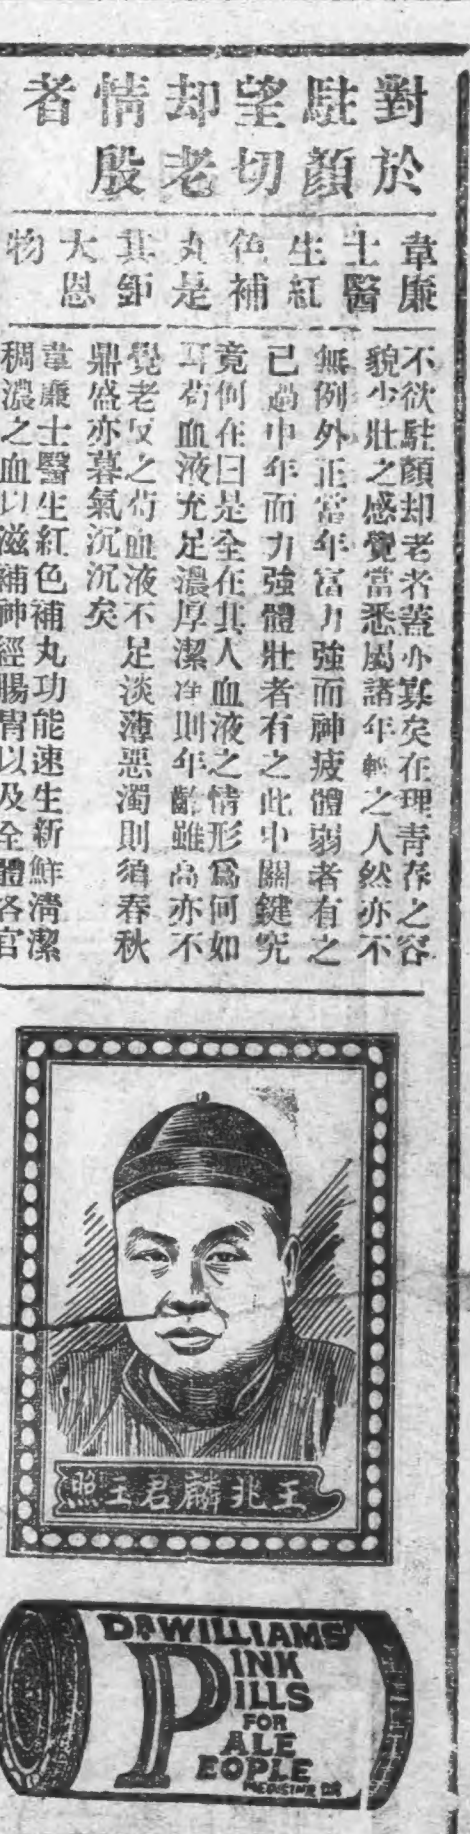 對於
駐顏
望切
却老
情殷
者
韋廉
士醫
生紅
色補
丸是
其鉅
大恩
物
不欲駐顏却老者蓋亦寡矣在理青春之容
貌少壯之感覺當悉屬諸年輕之人然亦不
無例外正當年富力強而神疲體弱者有之
已過中年而力強體壯者有之此中關鍵究
竟何在曰是全在其人血液之情形爲何如
耳苟血液充足濃厚潔净則年齡雖高亦不
覺老反之苟血液不足淡薄惡濁則須春秋
鼎盛亦暮氣沉沉矣
韋廉士醫生紅色補丸功能速生新鮮清潔
稠濃之血以滋補神經腸胃以及全體各官
王兆麟君玉照
DR WILLIAMS'
PINK
PILLS
FOR
PALE
PEOPLE
MEDICINE